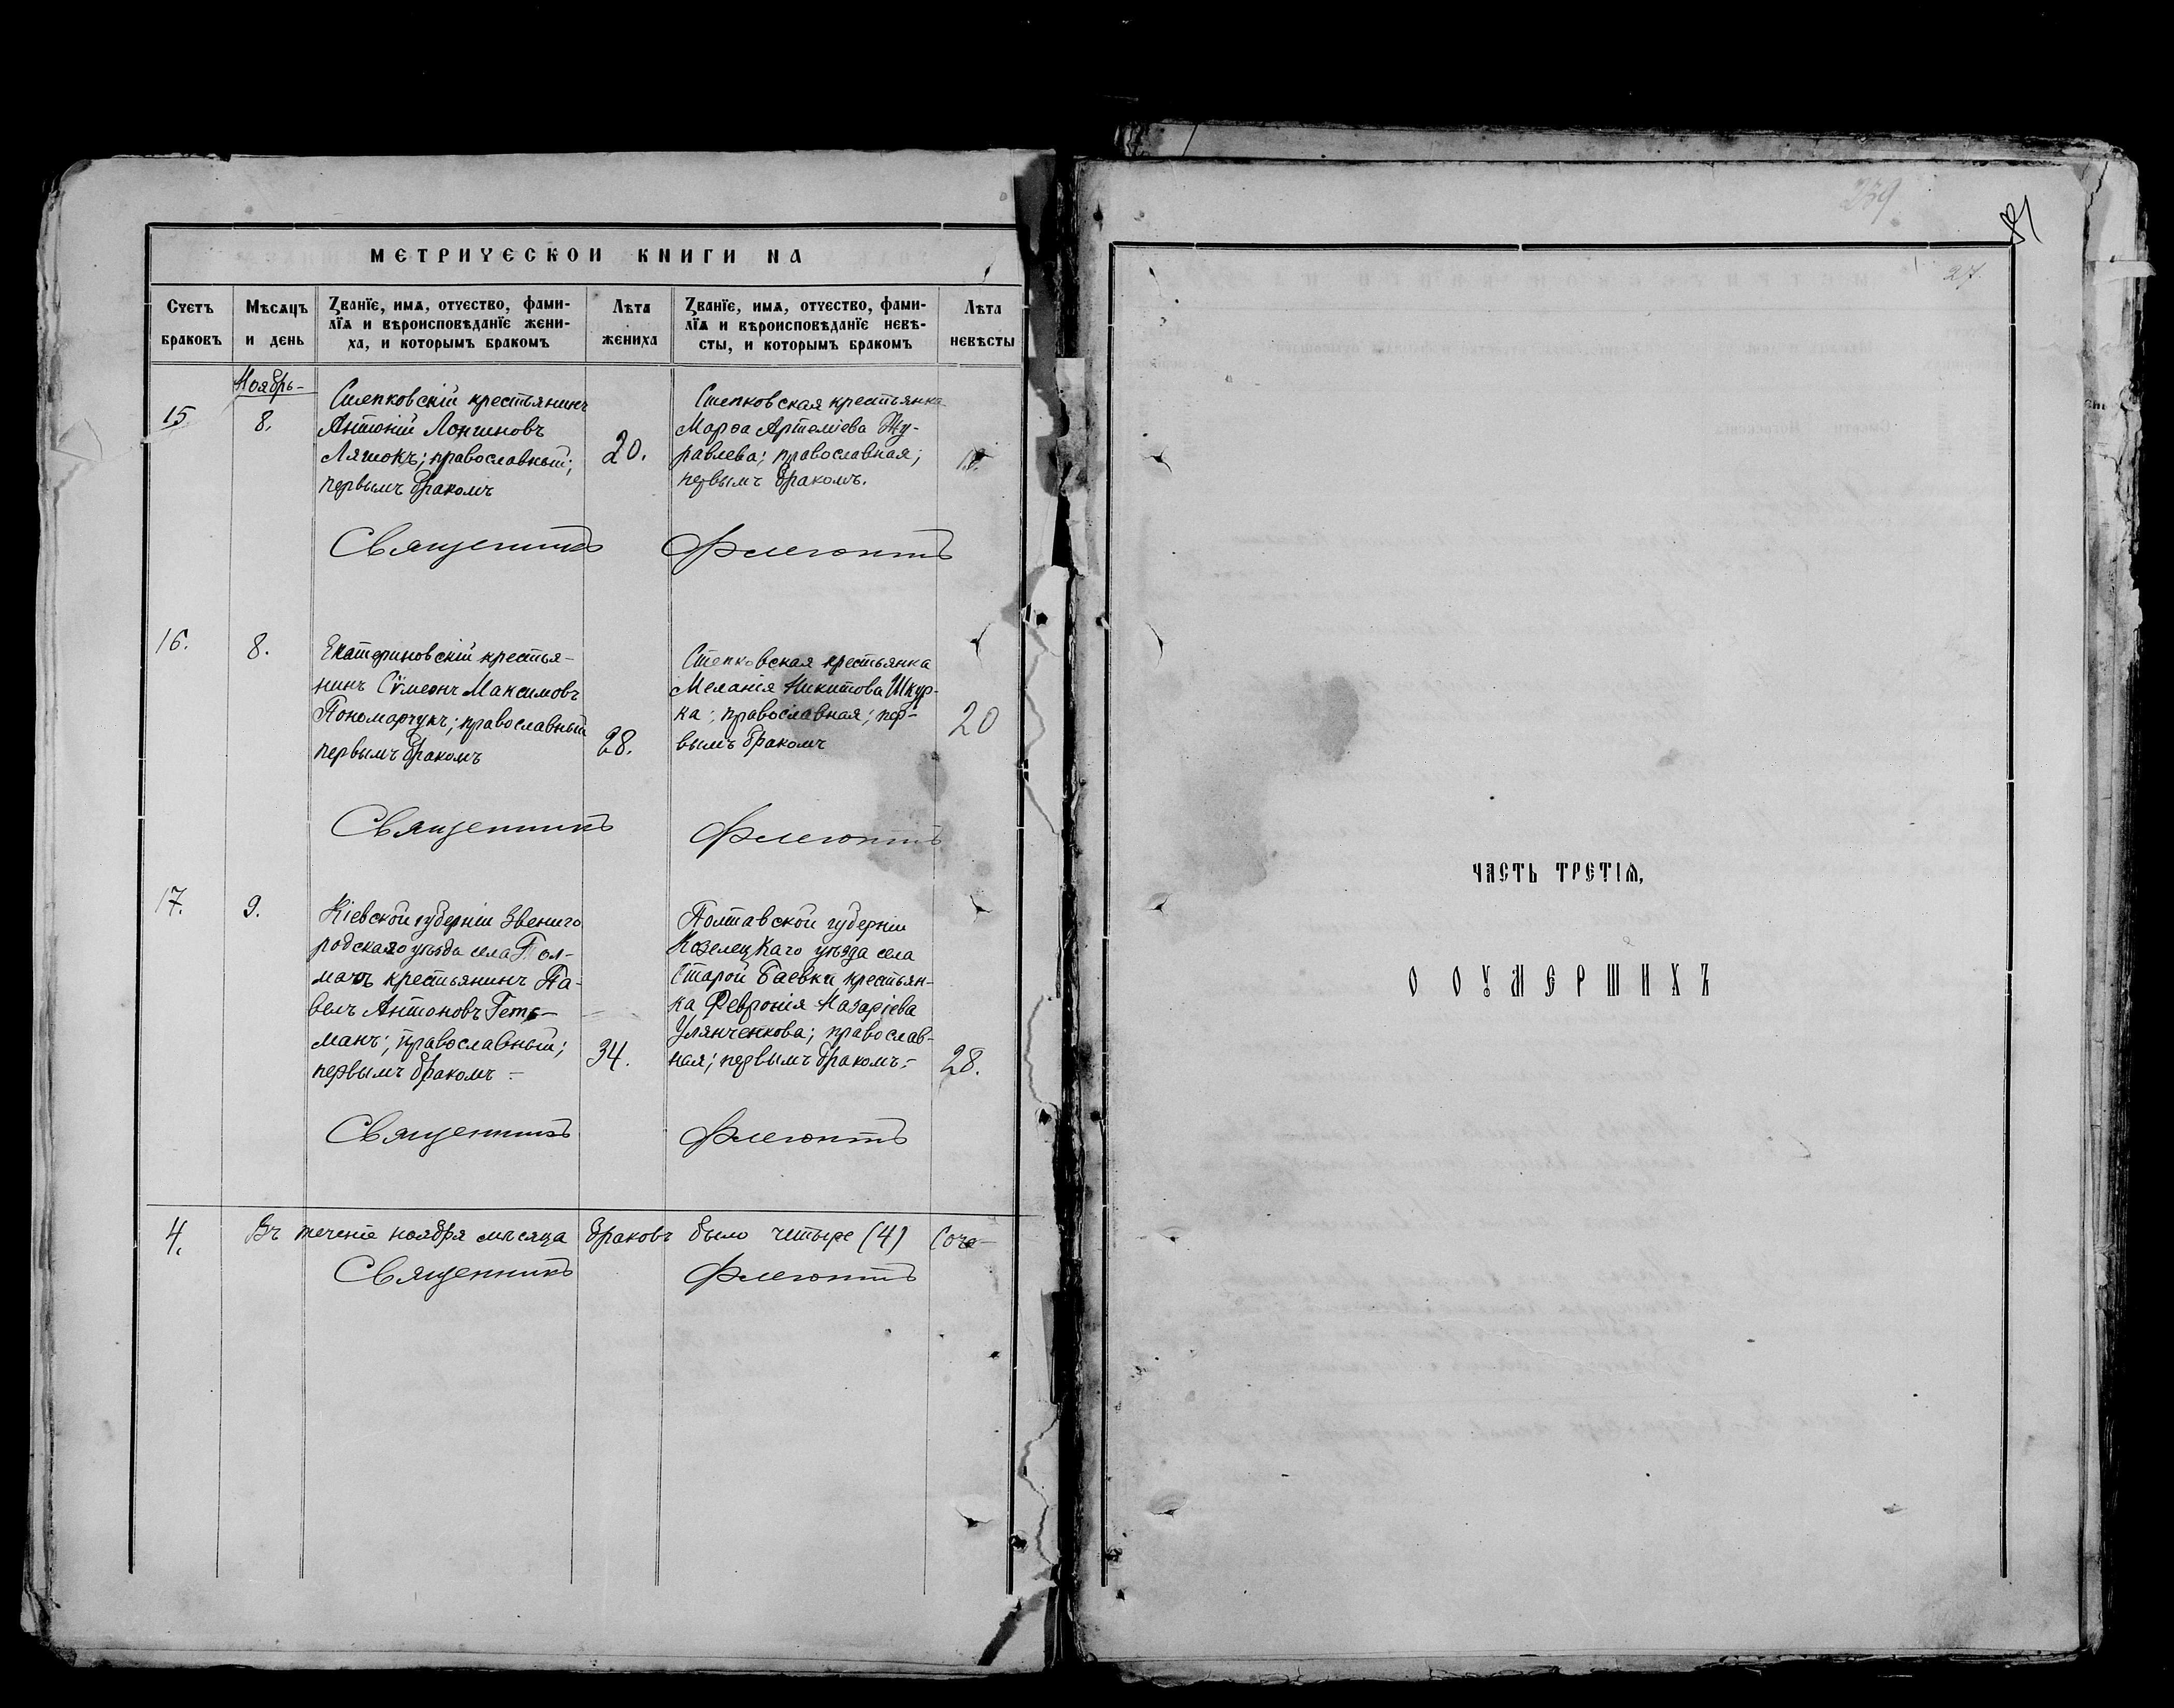 МЕТРИЧЕСКОИ КНИГИ NА
Счетъ браковъ
Мѣсѧцъ и день
Званїе, имѧ, отчество, фами-
лїѧ и вѣроисповѣданїе жени-
ха, и которымъ бракомъ
Лѣта жениха
Званїе, имѧ, отчество, фами-
лїѧ и вѣроисповѣданїе невѣ-
сты, и которымъ бракомъ
Лѣта невѣсты
Ноябрь-
15
8.
Степковскій крестьянинъ
Антоній Лонгиновъ
Ляшокъ; православный;
первымъ бракомъ
20.
Степковская крестьянка
Марѳа Артеміева Жу-
равлева; православная;
первымъ бракомъ.
Священникъ
16.
8.
Екатериновскій крестья-
нинъ Сѵмеонъ Максимовъ
Пономарчукъ; православный
первымъ бракомъ
28.
Степковская крестьянка
Меланія Никитова Шкур-
ка; православная; пер-
вымъ бракомъ
20
Священникъ
17.
9.
Кіевской губерніи Звениго
родскаго уѣзда села Тол-
мачъ крестьянинъ Па-
велъ Антоновъ Гетъ-
манъ; православный;
первымъ бракомъ -
34.
Полтавской губерніи
Козелецкаго уѣзда села
Старой Баевки крестьян-
ка Февронія Назаріева
Улянченкова; православ-
ная; первымъ бракомъ.-
28.
Священникъ
4.
Въ теченіе ноября мѣсяца браковъ было четыре (4)
Священникъ
239
81
27.
ЧАСТЬ ТРЕТІѦ,
О ОУМЕРШИХЪ